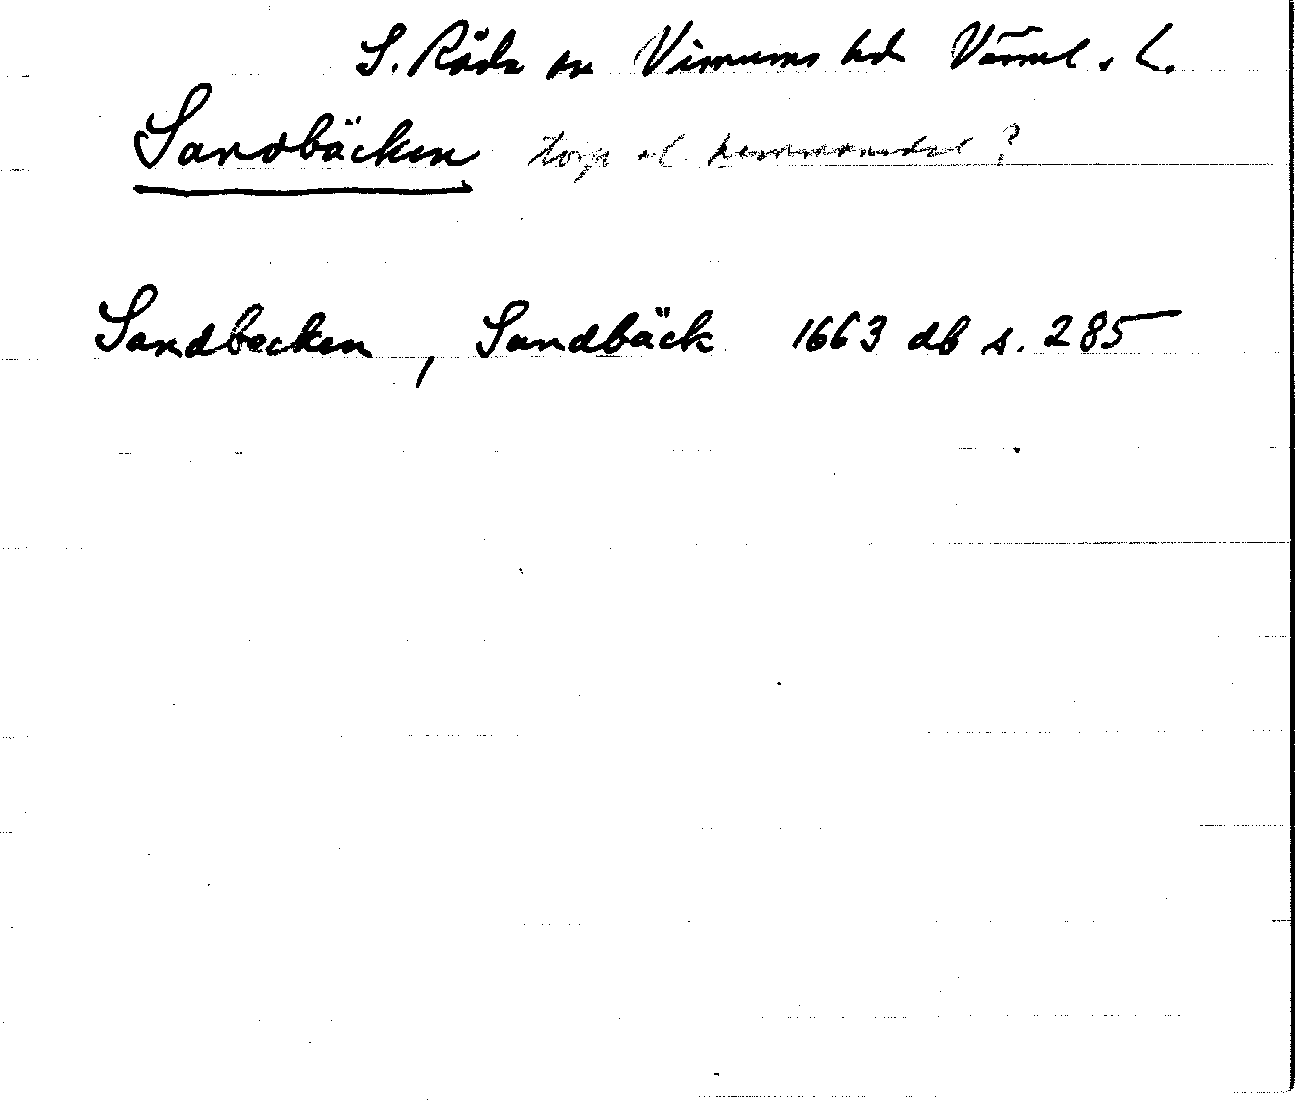 S. Råda sn Visnums hd Värml. l.
Sandbäcken torp el hemmansdel ?
Sandbecken, Sandbäck 1663 db s. 285